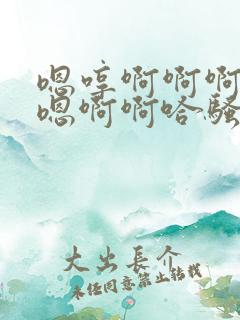 嗯哼啊啊啊
嗯啊啊哈骚
大出長介
未经同意禁止转载